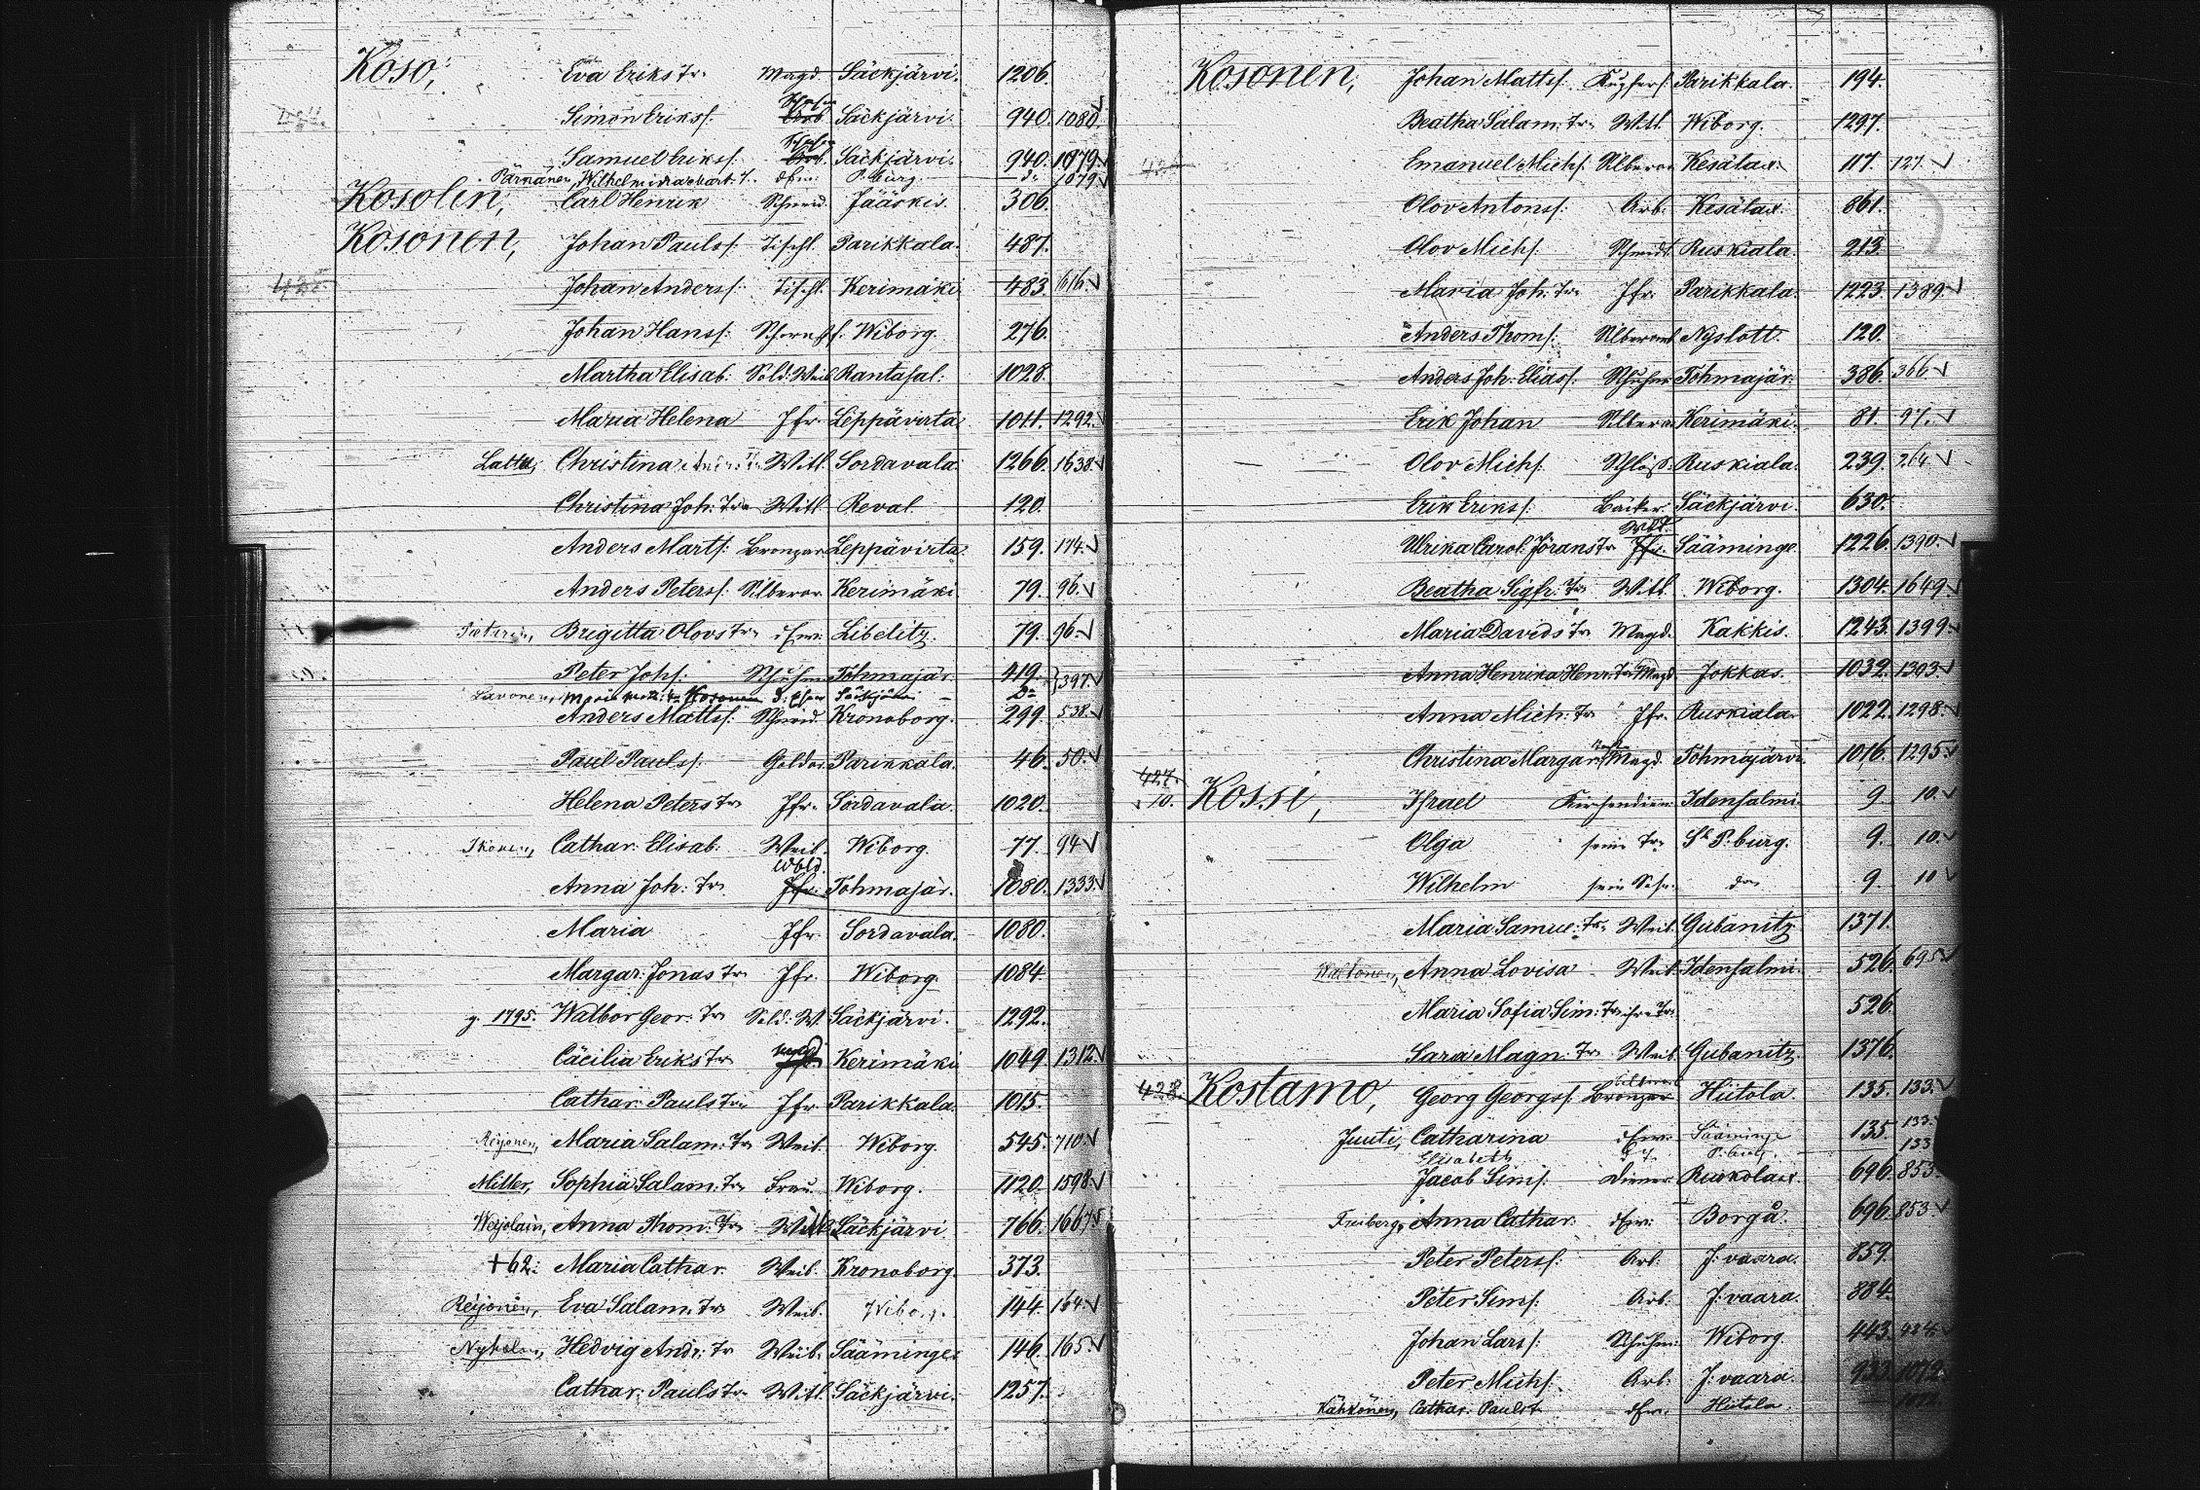 Koso, Eva Eriks Tr. Magd. Säckjärvi. 1206.
Simon Erikss. Säckjärvi. 940. 1080. √
Samuel Erikss. Säckjärvi. 940. 1079 √
Pärnänen, Wilhelmina P. burg. 1079 √
Kosolin, Carl Henrik Schneid. Jääskis. 306.
Kosonen, Johan Paulss. Tischl. Parikkala. 487.
Johan Anderss. Tischl. Kerimäki 483. 616 √
Johan Hanss. Wiborg. 276.
Martha Elisab. Sold: Weib Rantasal: 1028.
Maria Helena Jfr. Leppävirta 1011. 1292. √
Lattu, Christina Witl. Sordavala. 1266. 1638 √
Christina Joh: Tr. Witl. Reval 120.
Anders Marts: Bronzar Leppävirta. 159. 174. √
Anders Peterss: Silberar. Kerimäki 79. 96. √
Brigitta Olovs Tr. Libelitz. 79. 96. √
Peter Johs. Schuhm Tohmajär. 419. 397. √
Savonen, Maria Kosonen Säckjärvi
Anders Matts. Schneid. Kronoborg. 299. 538. √
Paul Paulss. Goldar. Parikkala. 46. 50. √
Helena Peters Tr. Jfr. Sordavala. 1020.
Ikonen, Cathar. Elisab. Weib. Wiborg. 77. 94 √
Anna Joh: Tr. Jfr. Tohmajär. 1080. 1333. √
Maria Jfr. Sordavala. 1080.
Margar. Jonas Tr. Jfr. Wiborg 1084.
g. 1795. Walbor Geor. Tr. Sold: W. Säckjärvi. 1292.
Cäcilia Eriks Tr. Kerimäki 1049. 1312. √
Cathar. Pauls Tr. Jfr. Parikkala. 1015.
Reijonen, Maria Salam: Tr. Weib. Wiborg. 545. 710. √
Miller, Sophia Salam: Tr. Frau. Wiborg. 1120. 1598 √
Anna Thom: Tr. Säckjärvi 766. 1667
+62: Maria Cathar. Weib. Kronoborg. 373.
Reijonen, Eva Salam: Tr. Weib. Wiborg. 144. 164. √
Hedvig Andr: Tr Weib. Sääminge. 146. 165. √
Cathar. Pauls Tr. Witl. Säckjärvi. 1257.
Kosonen, Johan Mattss. Parikkala. 194.
Beatha Salam: Tr. Witl. Wiborg. 1297.
Emanuel Michs. Silberar Kesälax. 117. 127. √
Olov Antonss. Arb. Kesälax. 861.
Olov Michs. Schmidt Ruskiala. 213.
Maria Joh: Tr. Jfr. Parikkala. 1223. 1389. √
Anders Thoms. Silberarb Nyslott. 120.
Anders Joh: Eliass. Schuhm Tohmajär. 386. 366. √
Erik Johan Silberar Kerimäki. 81. 97. √
Olov Michs. Schloss. Ruskiala. 239. 264 √
Erik Erikss. Bäcker Säckjärvi. 630.
Ulrika Carol. Jörans Tr Jfr. Sääminge. 1226. 1390. √
Beatha Sigfr: Tr. Witl. Wiborg. 1304. 1649 √
Maria Davids Tr. Magd. Kakkis. 1243. 1399. √
Anna Henrika Henr. Tr Magd Jokkas. 1032. 1303 √
Anna Mich: Tr. Jfr. Ruskiala. 1022. 1298. √
Christina Margar. Magd. Tohmajärvi. 1016. 1295 √
427.
10. Kossi, Israel Kirchendien Idensalmi. 9. 10. √
Olga seine Tr. St P. burg. 9. 10. √
Wilhelm sein Sohn do 9. 10 √
Maria Samue: Tr. Weib. Gubanitz. 1371.
Anna Lovisa Weib. Idensalmi. 526. 695 √
Maria Sofia Sim: Tr ihre Tr. 526.
Sara Magn: Tr Weib. Gubanitz. 1376.
428. Kostamo, Georg Georgss. Bronzar Hiitola. 135. 133. √
Juuti, Catharina Sääminge 135. 133.
Elisabeth P. burg. 133
Jacob Sims. Diener Ruokolax. 696. 853.
Freiberg, Anna Cathar. Borgå. 696. 853. √
Peter Peterss. Arb. J: vaara. 859.
Peter Sims. Arb. J: vaara. 884.
Johan Larss. Schuhm: Wiborg. 443.
Peter Michs. Arb. J: vaara. 933. 1072.
Kähkönen, Cathar. Paulst Hiitola.